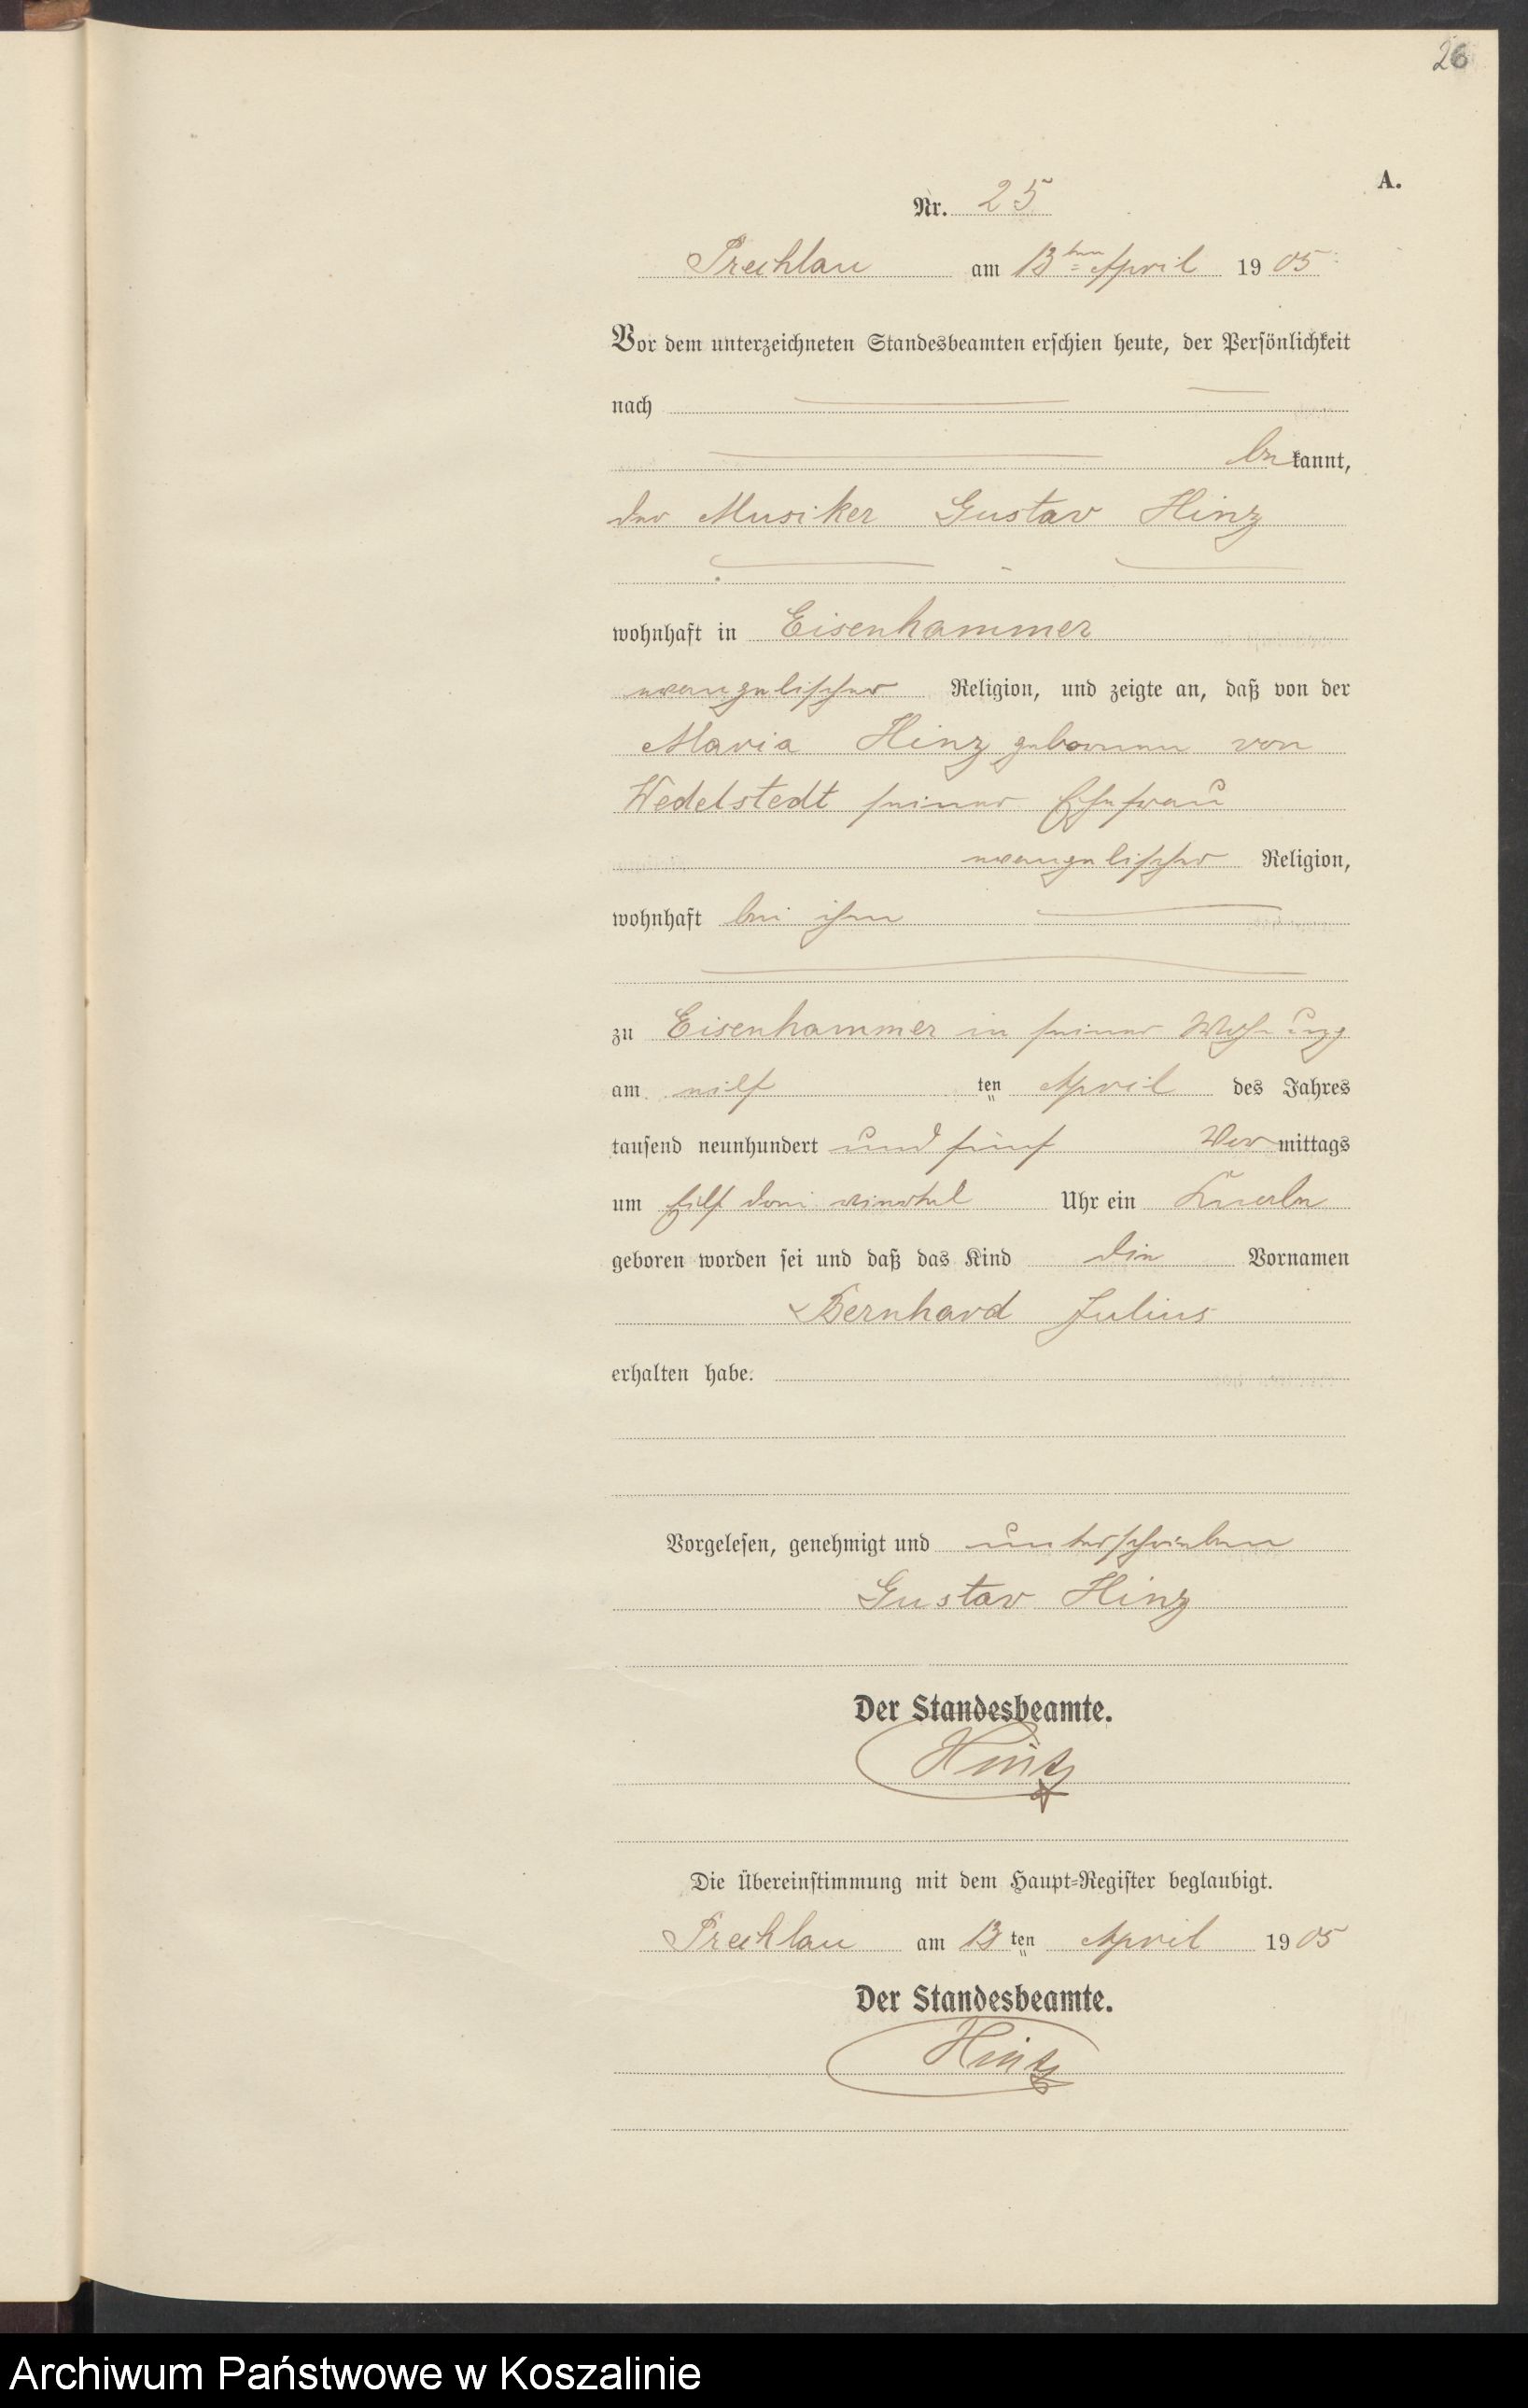 26
A.
Nr. 25
Prechlau am 13ten April 1905
Vor dem unterzeichneten Standesbeamten erschien heute, der Persönlichkeit
nach
bekannt,
der Musiker Gustav Hinz
wohnhaft in Eisenhammer
evangelischer Religion, und zeigte an, daß von der
Maria Hinz geborenen von
Wedelstedt seiner Ehefrau
evangelischer Religion,
wohnhaft bei ihm
zu Eisenhammer in seiner Wohnung
am elf ten April des Jahres
tausend neunhundert und fünf Vormittags
um Elf drei viertel Uhr ein Knabe
geboren worden sei und daß das Kind die Vornamen
Bernhard Julius
erhalten habe.
Vorgelesen, genehmigt und unterschrieben
Gustav Hinz
Der Standesbeamte.
Hintz
Die Übereinstimmung mit dem Haupt-Register beglaubigt.
Prechlau am 13ten April 1905
Der Standesbeamte.
Hintz
Archiwum Państwowe w Koszalinie